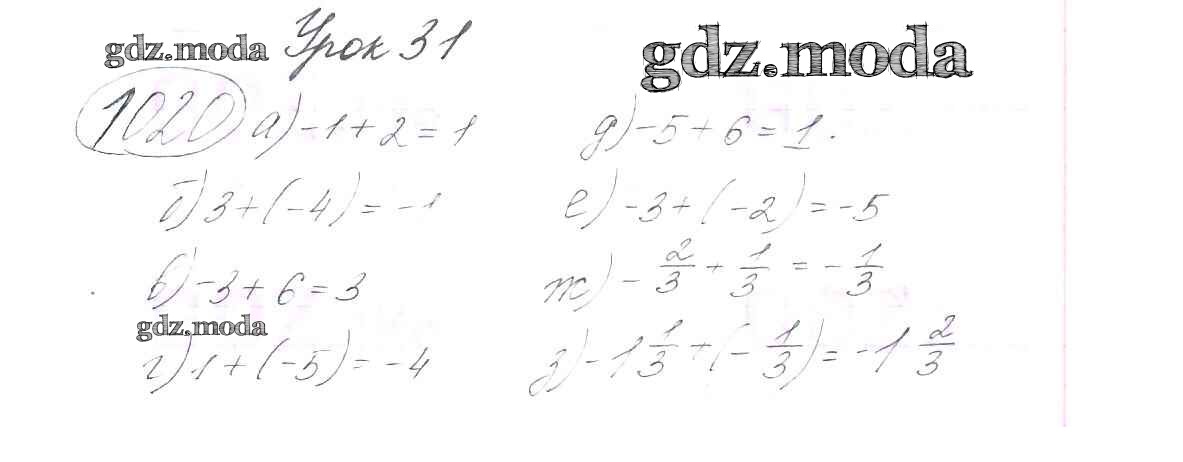 gdz.moda Урок 31 gdz.moda
1020 а) -1 + 2 = 1
б) 3 + (-4) = -1
в) -3 + 6 = 3
gdz.moda
г) 1 + (-5) = -4
д) -5 + 6 = 1.
е) -3 + (-2) = -5
ж) - 2/3 + 1/3 = - 1/3
з) -1 1/3 + (- 1/3) = -1 2/3